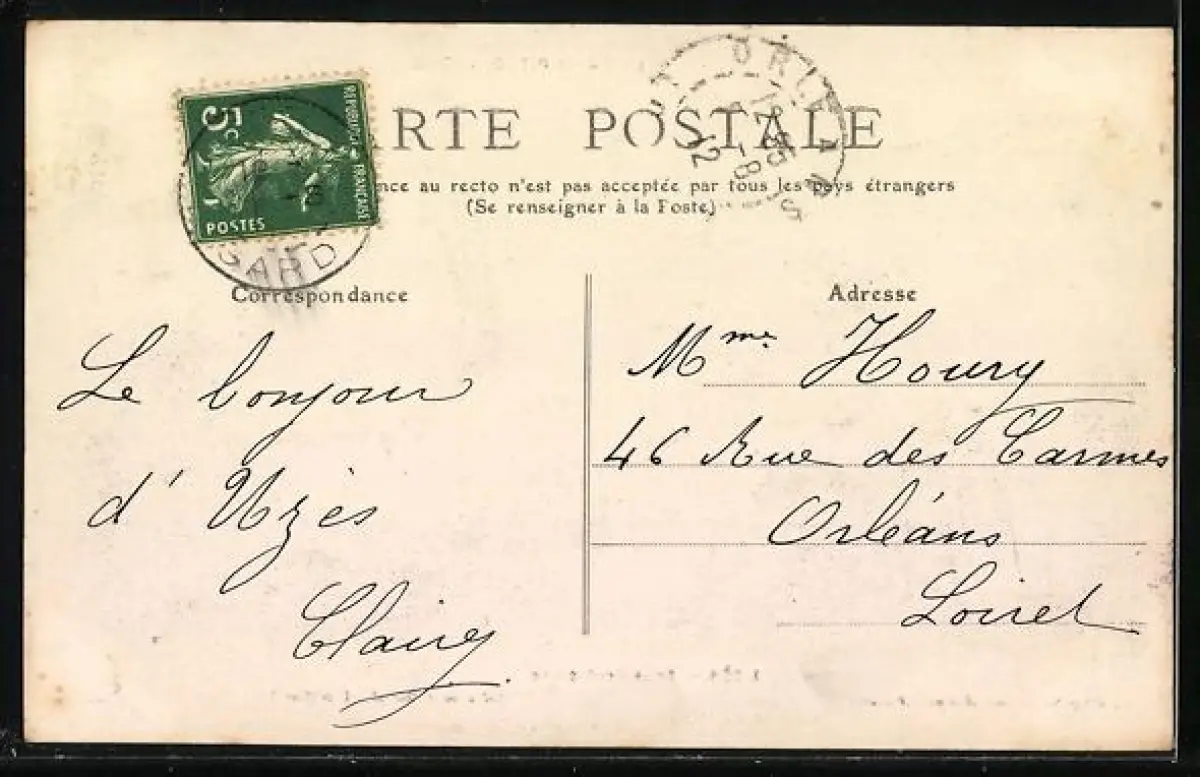 5c
REPUBLIQUE FRANÇAISE
POSTES
GARD
ORLEANS
12 35
8 - 8
12
ARTE POSTALE
nce au recto n'est pas acceptée par tous les pays étrangers
(Se renseigner à la Poste)
Correspondance
Le bonjour
d'Uzès
Adresse
Mme Houry
46 Rue des Carmes
Orléans
Loiret